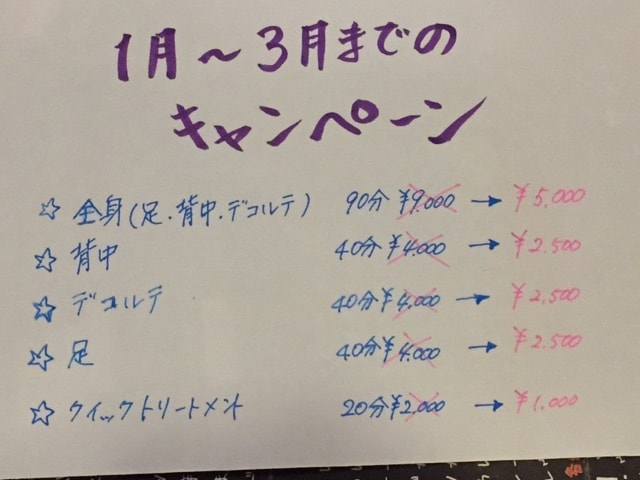 1月〜3月までの
キャンペーン
☆ 全身(足・背中・デコルテ) 90分 ¥9,000 → ¥5,000
☆ 背中 40分 ¥4,000 → ¥2,500
☆ デコルテ 40分 ¥4,000 → ¥2,500
☆ 足 40分 ¥4,000 → ¥2,500
☆ クイックトリートメント 20分 ¥2,000 → ¥1,000